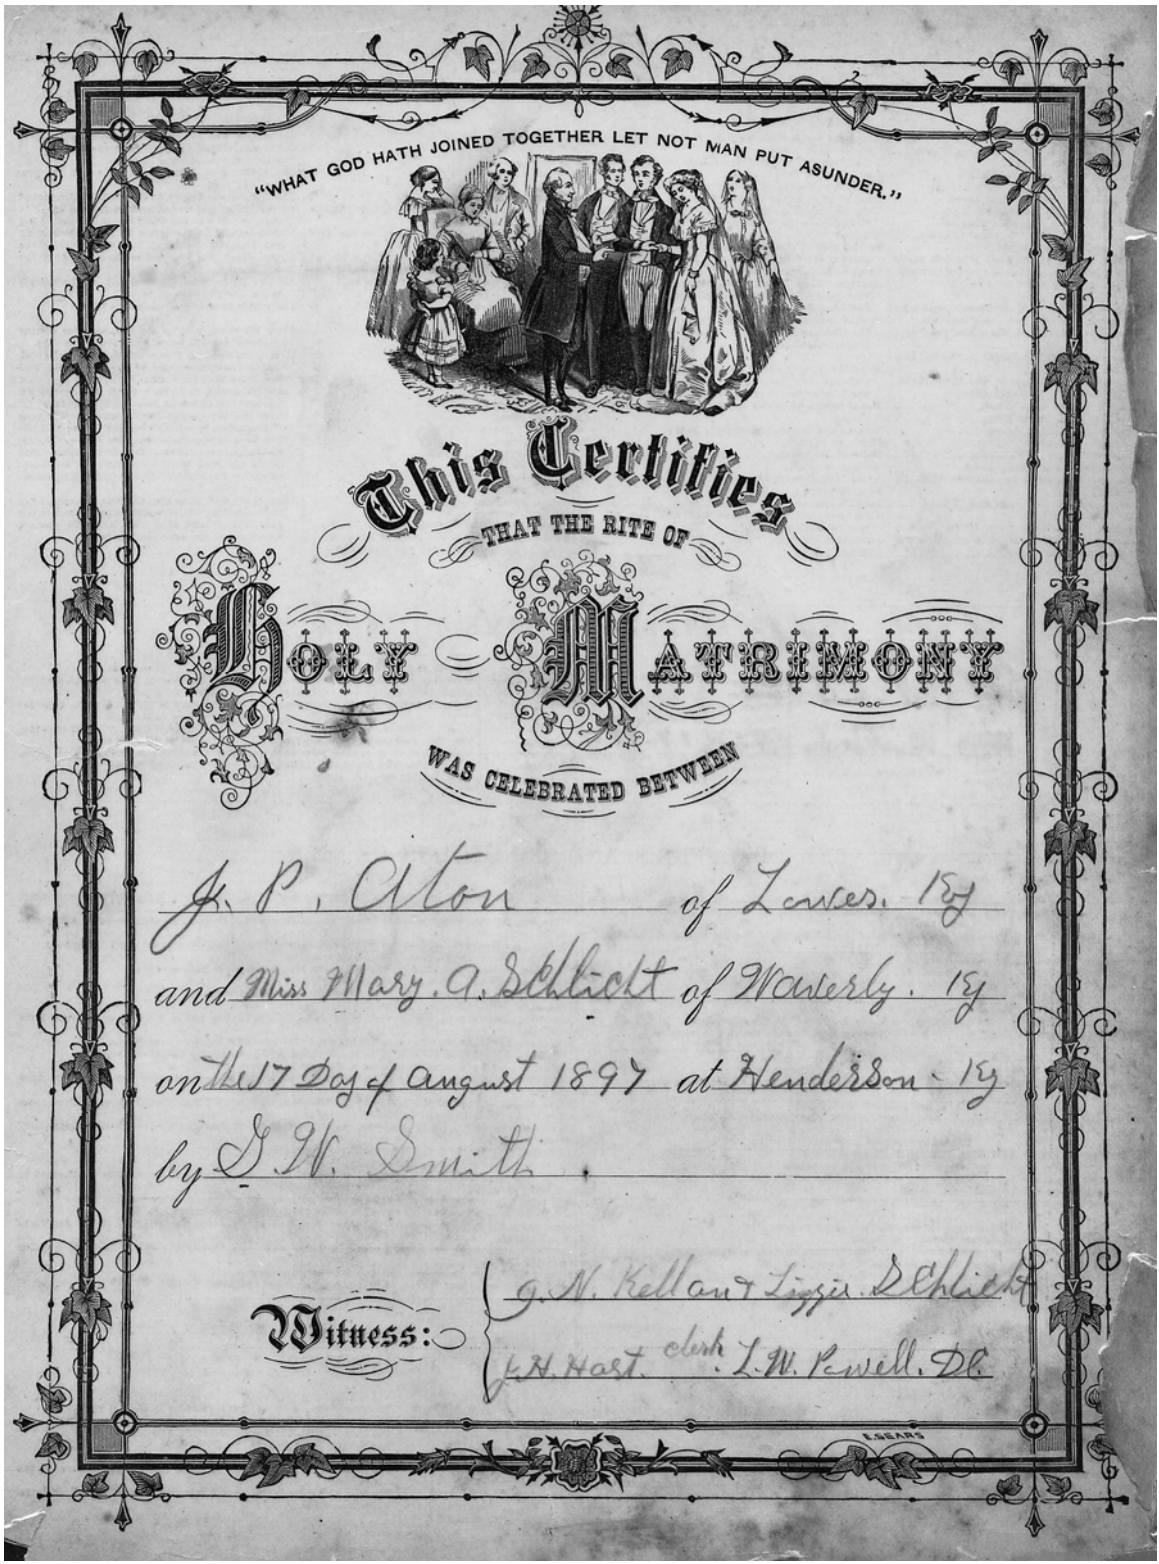 "WHAT GOD HATH JOINED TOGETHER LET NOT MAN PUT ASUNDER."
This Certifies
THAT THE RITE OF
HOLY MATRIMONY
WAS CELEBRATED BETWEEN
J. P. Aton of Lowes. Ky
and Miss Mary. A. Schlicht of Waverly. Ky
on the 17 Day of August 1897 at Henderson - Ky
by G. W. Smith
J. N. Kellan & Lizzie. Schlicht
Witness:
J. H. Hart. clerk. L. W. Powell. DC.
E. SEARS